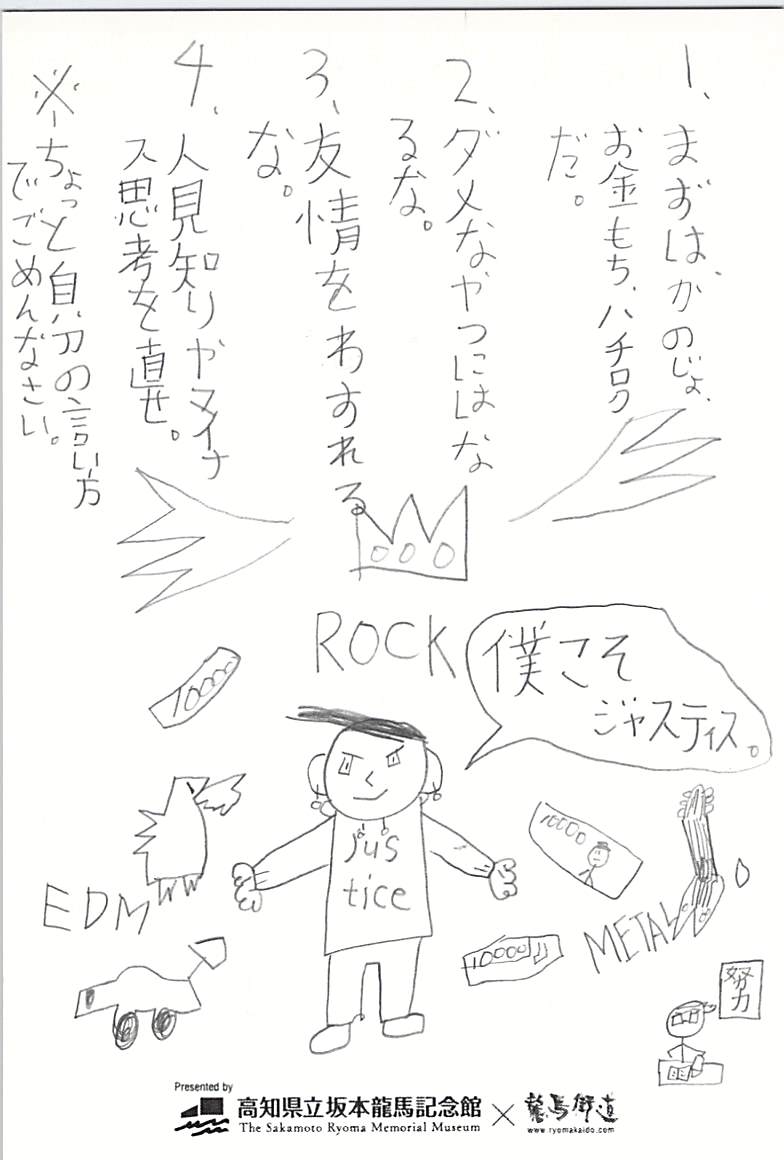 1、まずは、かのじょ、
お金もち、ハチロク
だ。
2、ダメなやつにはな
るな。
3、友情をわすれる
な。
4、人見知りやマイナ
ス思考を直せ。
※ちょっと自分の言い方
でごめんなさい。
ROCK
僕こそ
ジャスティス。
10000
Jus
tice
10000
EDM
METAL
10000
努力
Presented by
高知県立坂本龍馬記念館
The Sakamoto Ryoma Memorial Museum
×
龍馬街道
www.ryomakaido.com